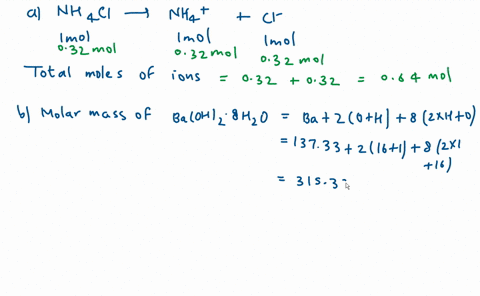 a) NH4Cl ⟶ NH4+ + Cl-
1mol 1mol 1mol
0.32 mol 0.32 mol 0.32 mol
Total moles of ions = 0.32 + 0.32 = 0.64 mol
b) Molar mass of Ba(OH)2·8H2O = Ba+2(O+H) + 8(2xH+O)
= 137.33 + 2(16+1) + 8(2x1
+16)
= 315.3